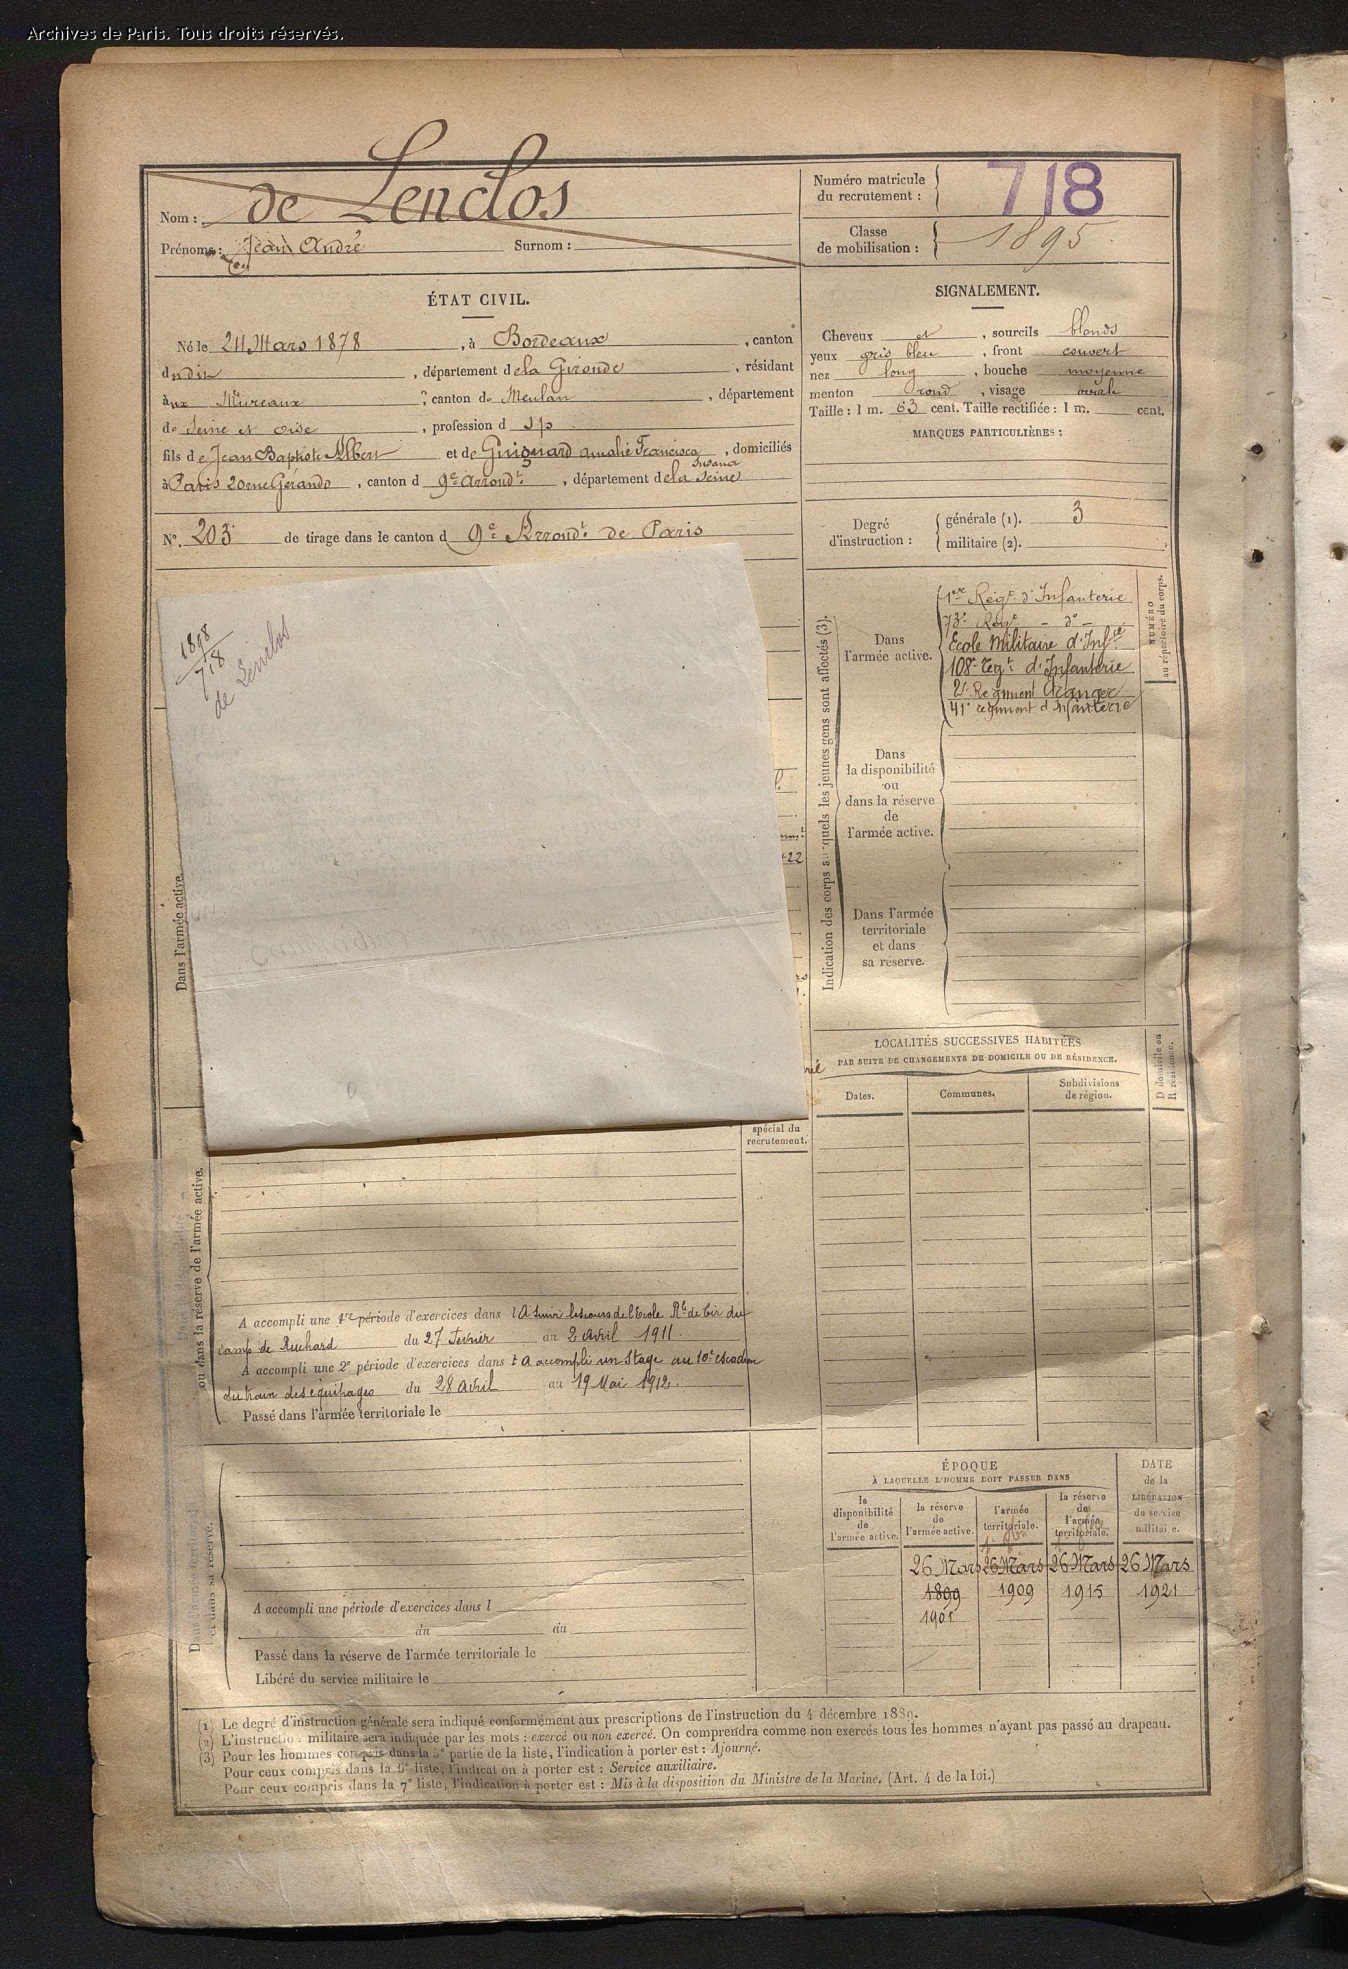 Archives de Paris. Tous droits réservés.
Nom : de Lenclos
Prénoms : Jean André Surnom :
Numéro matricule du recrutement : 718
Classe de mobilisation : 1895
ÉTAT CIVIL.
Né le 24 Mars 1878, à Bordeaux, canton
du dit, département de la Gironde, résidant
aux Mureaux, canton de Meulan, département
de Seine et Oise, profession d S/p
fils de Jean Baptiste Albert et de Guignard Amalie Francisca Susana, domiciliés
à Paris 20 rue Gérando, canton d 9e Arrondt, département de la Seine
No. 203 de tirage dans le canton d 9e Arrondt de Paris
SIGNALEMENT.
Cheveux et, sourcils blonds
yeux gris bleu, front couvert
nez long, bouche moyenne
menton rond, visage ovale
Taille : 1 m. 63 cent. Taille rectifiée : 1 m. cent.
MARQUES PARTICULIÈRES :
Degré d'instruction :
générale (1). 3
militaire (2).
1898
718
de Lenclos
Indication des corps auxquels les jeunes gens sont affectés (3).
Dans l'armée active.
1er Régt d'Infanterie
73e Régt - do -
Ecole Militaire d'Infie
108e Régt d'Infanterie
2e Régiment Etranger
41e régiment d'Infanterie
NUMÉRO au répertoire du corps.
Dans
la disponibilité
ou
dans la réserve
de
l'armée active.
Dans l'armée
territoriale
et dans
sa réserve.
Dans l'armée active.
LOCALITÉS SUCCESSIVES HABITÉES
PAR SUITE DE CHANGEMENTS DE DOMICILE OU DE RÉSIDENCE.
Dates. Communes. Subdivisions de région. D domicile ou R résidence.
spécial du
recrutement.
ou dans la réserve de l'armée active.
A accompli une 1re période d'exercices dans l A suivi les cours de l'Ecole Rle de tir du
camp de Ruchard du 27 Février au 2 Avril 1911.
A accompli une 2e période d'exercices dans l A accompli un Stage au 10e escadron
du train des équipages du 28 Avril au 19 Mai 1912.
Passé dans l'armée territoriale le
et dans sa réserve.
A accompli une période d'exercices dans l
du au
Passé dans la réserve de l'armée territoriale le
Libéré du service militaire le
ÉPOQUE
À LAQUELLE L'HOMME DOIT PASSER DANS
la disponibilité de l'armée active.
la réserve de l'armée active.
l'armée territoriale.
la réserve de l'armée territoriale.
DATE de la LIBÉRATION du service militaire.
26 Mars 26 Mars 26 Mars 26 Mars
1899 1909 1915 1921
1901
(1) Le degré d'instruction générale sera indiqué conformément aux prescriptions de l'instruction du 4 décembre 1889.
(2) L'instruction militaire sera indiquée par les mots : exercé ou non exercé. On comprendra comme non exercés tous les hommes n'ayant pas passé au drapeau.
(3) Pour les hommes compris dans la 5e partie de la liste, l'indication à porter est : Ajourné.
Pour ceux compris dans la 6e liste, l'indication à porter est : Service auxiliaire.
Pour ceux compris dans la 7e liste, l'indication à porter est : Mis à la disposition du Ministre de la Marine. (Art. 4 de la loi.)